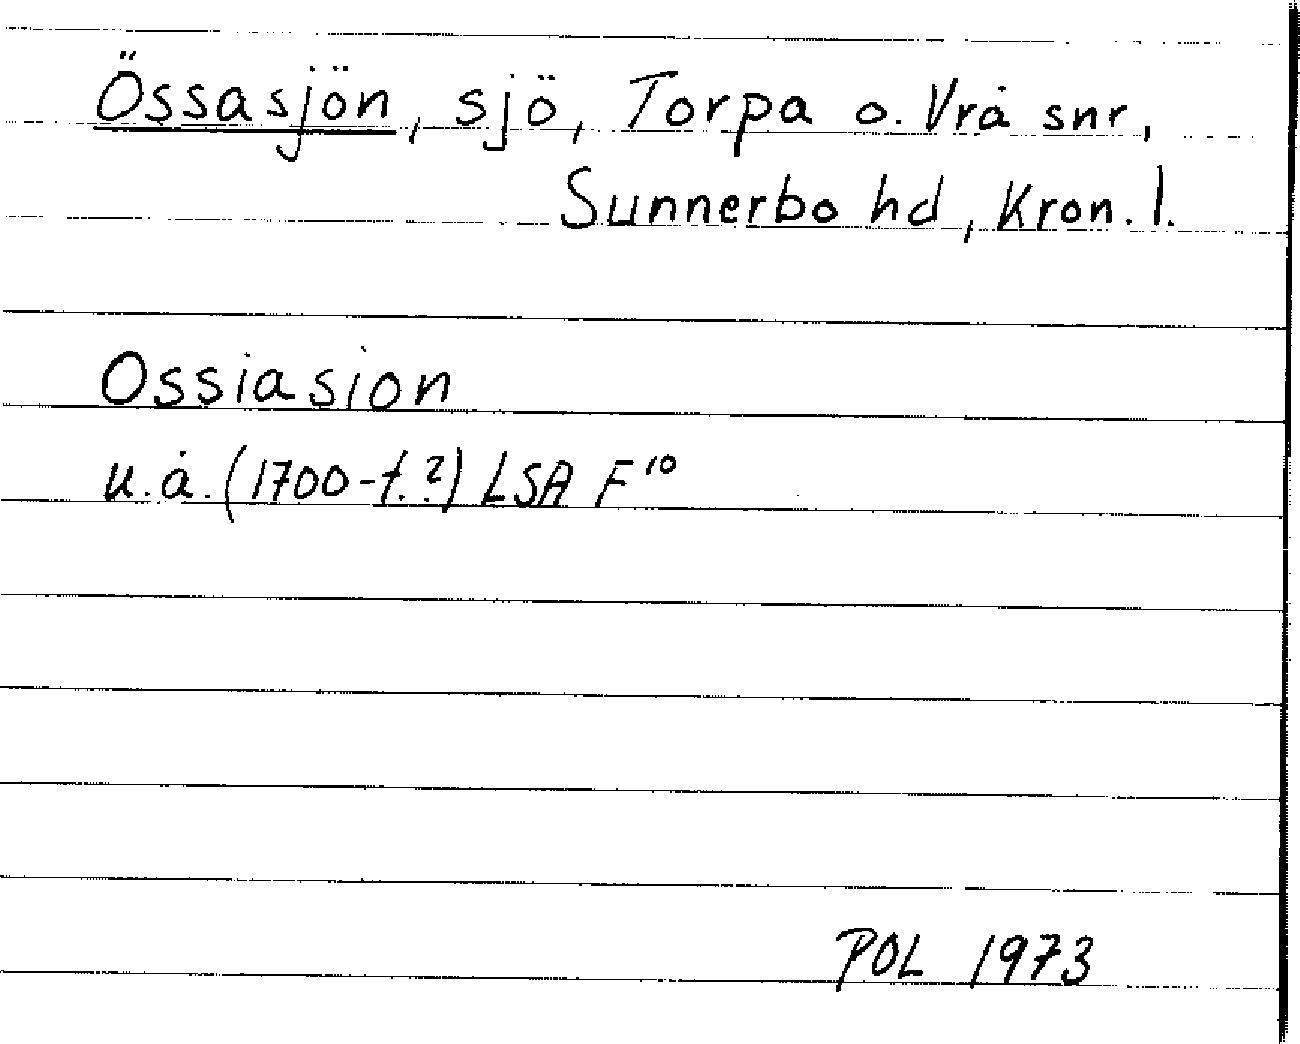 Össasjön, sjö, Torpa o. Vrå snr,
Sunnerbo hd, Kron. l.
Ossiasion
u.å. (1700-t.?) LSA F¹⁰
POL 1973